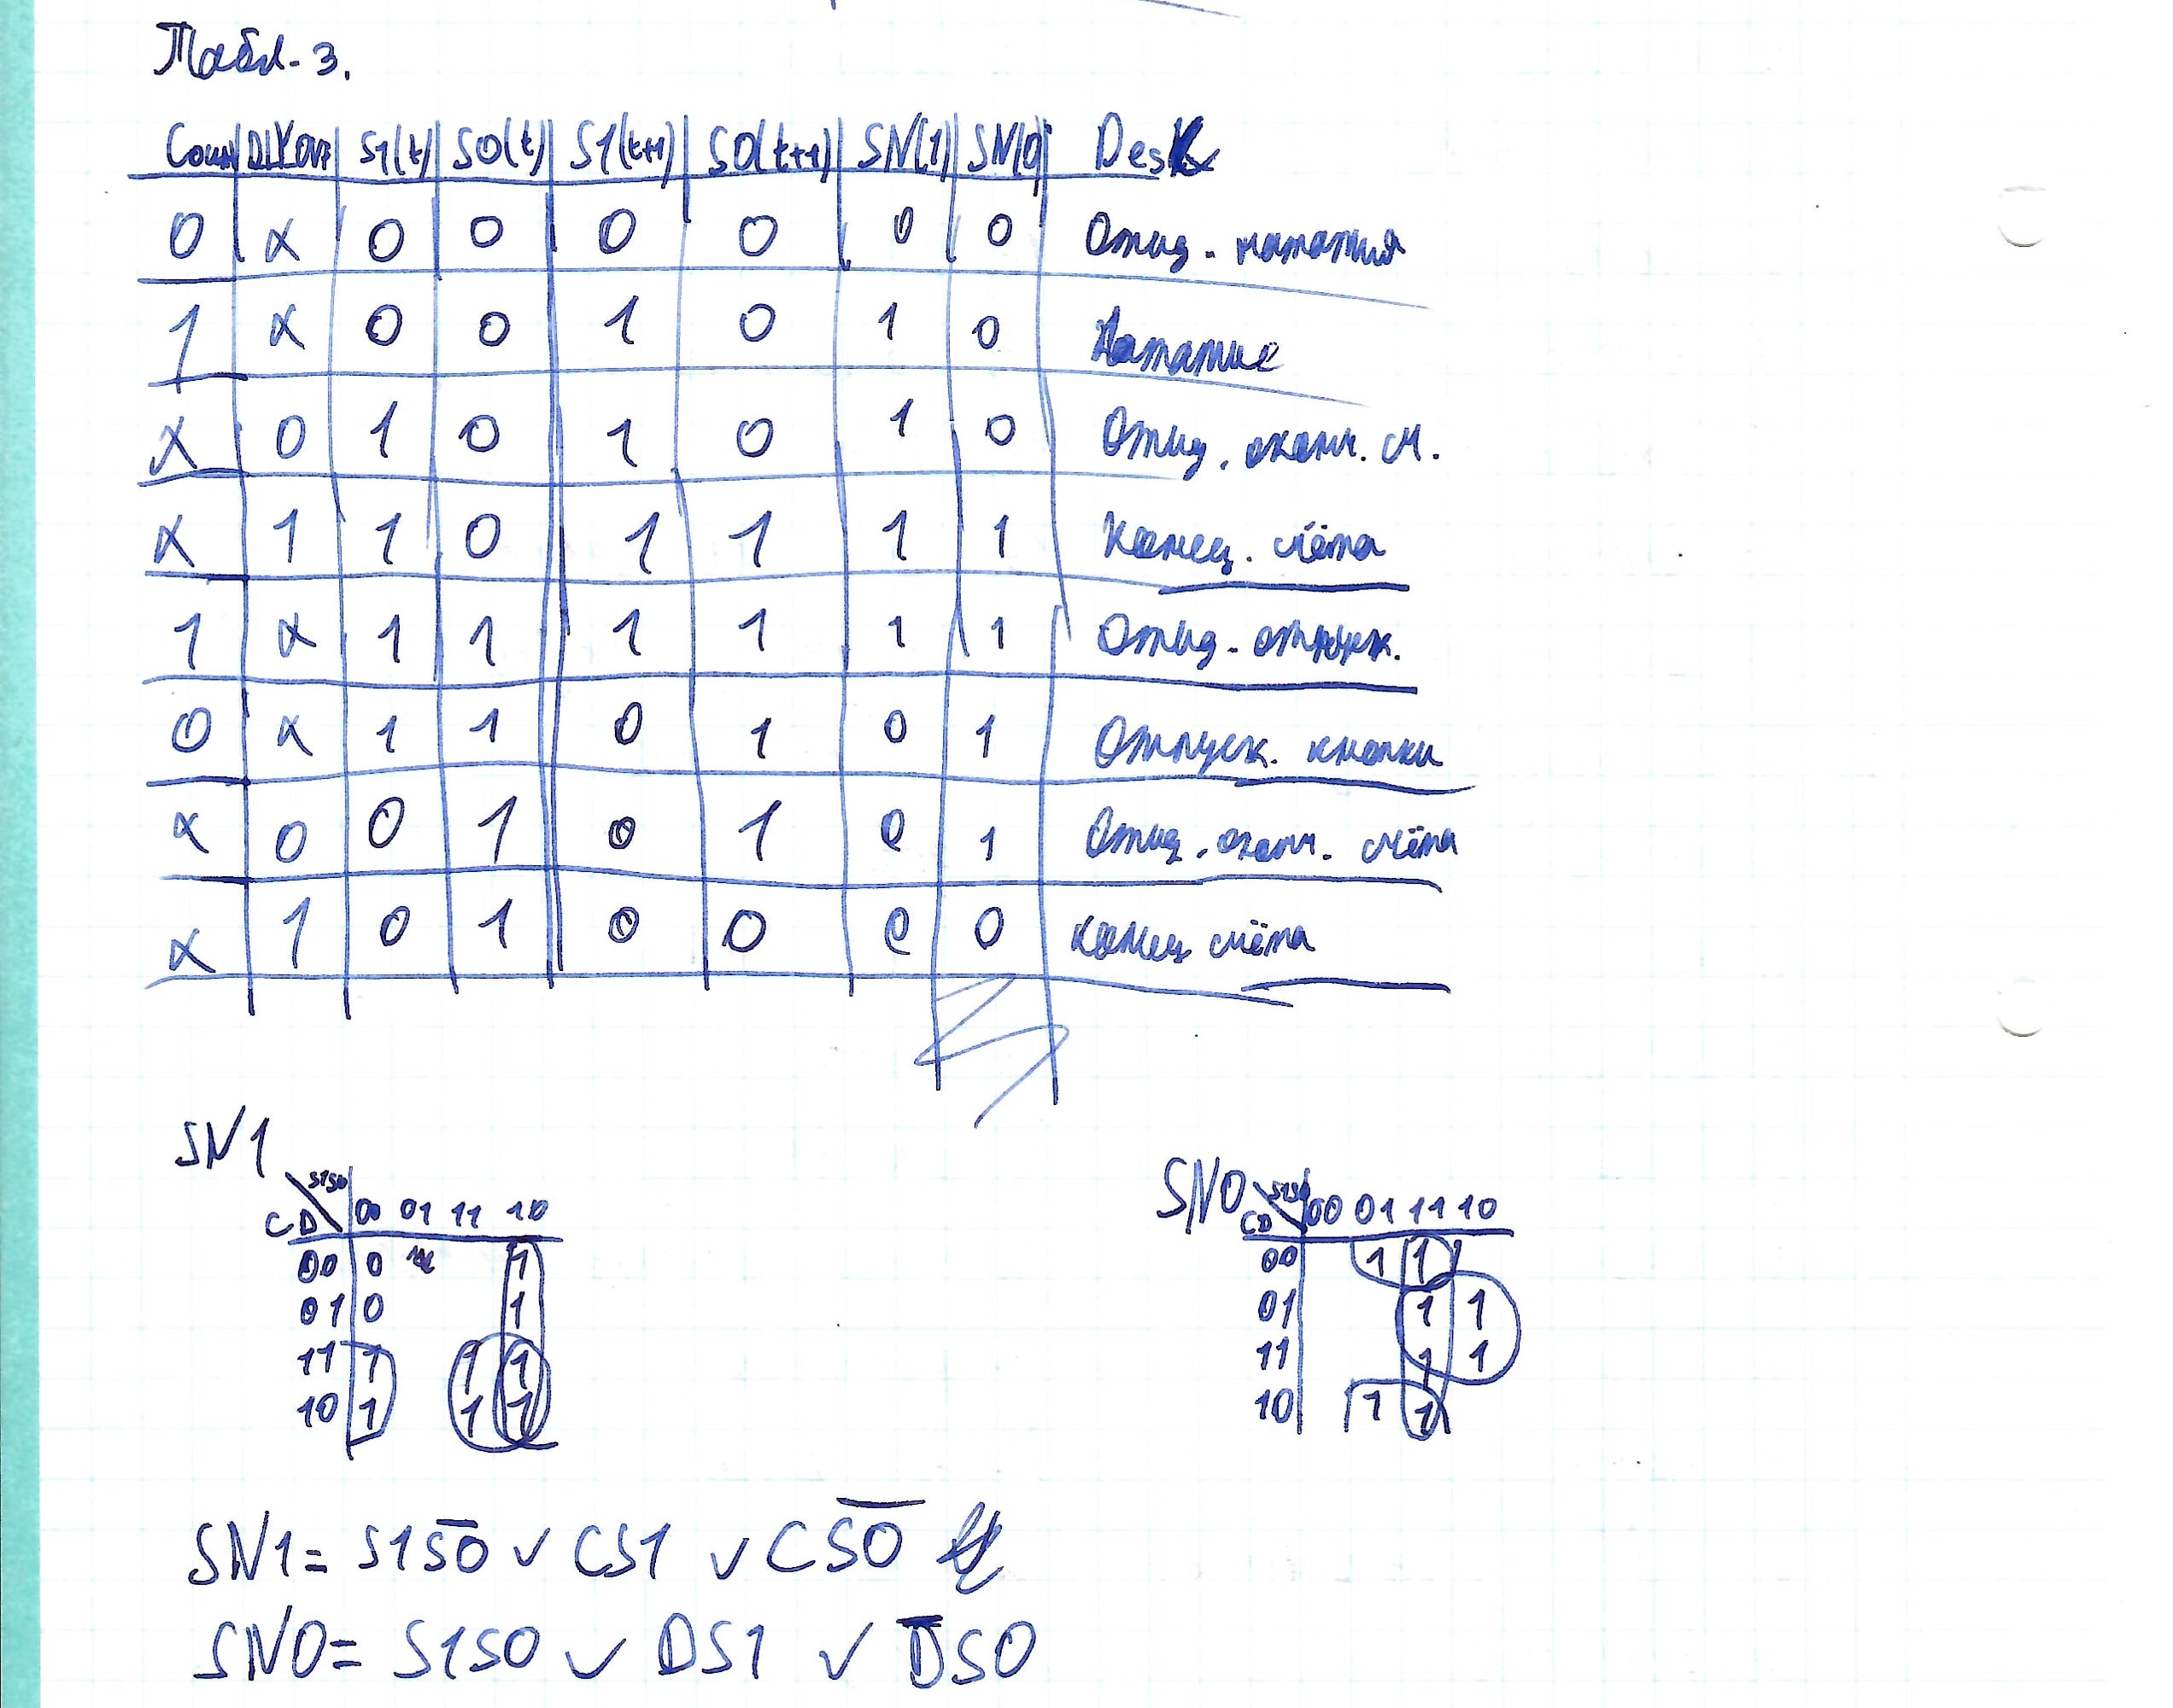 Табл-3.
Count DLYOVF S1(t) S0(t) S1(t+1) S0(t+1) SN(1) SN(0) Desk
0 x 0 0 0 0 0 0 Ожид. нажатия
1 x 0 0 1 0 1 0 Нажатие
x 0 1 0 1 0 1 0 Ожид. оконч. сч.
x 1 1 0 1 1 1 1 Конец. счёта
1 x 1 1 1 1 1 1 Ожид. отпуск.
0 x 1 1 0 1 0 1 Отпуск. кнопки
x 0 0 1 0 1 0 1 Ожид. оконч. счёта
x 1 0 1 0 0 0 0 конец счёта
SN1
S1S0
CD 00 01 11 10
00 0 1
01 0 1
11 1 1 1
10 1 1 1
SN0 S1S0
CD 00 01 11 10
00 1 1
01 1 1
11 1 1
10 1 1
SN1= S1S̅0̅ ∨ CS1 ∨ CS̅0̅
SN0= S1S0 ∨ DS1 ∨ D̅S0